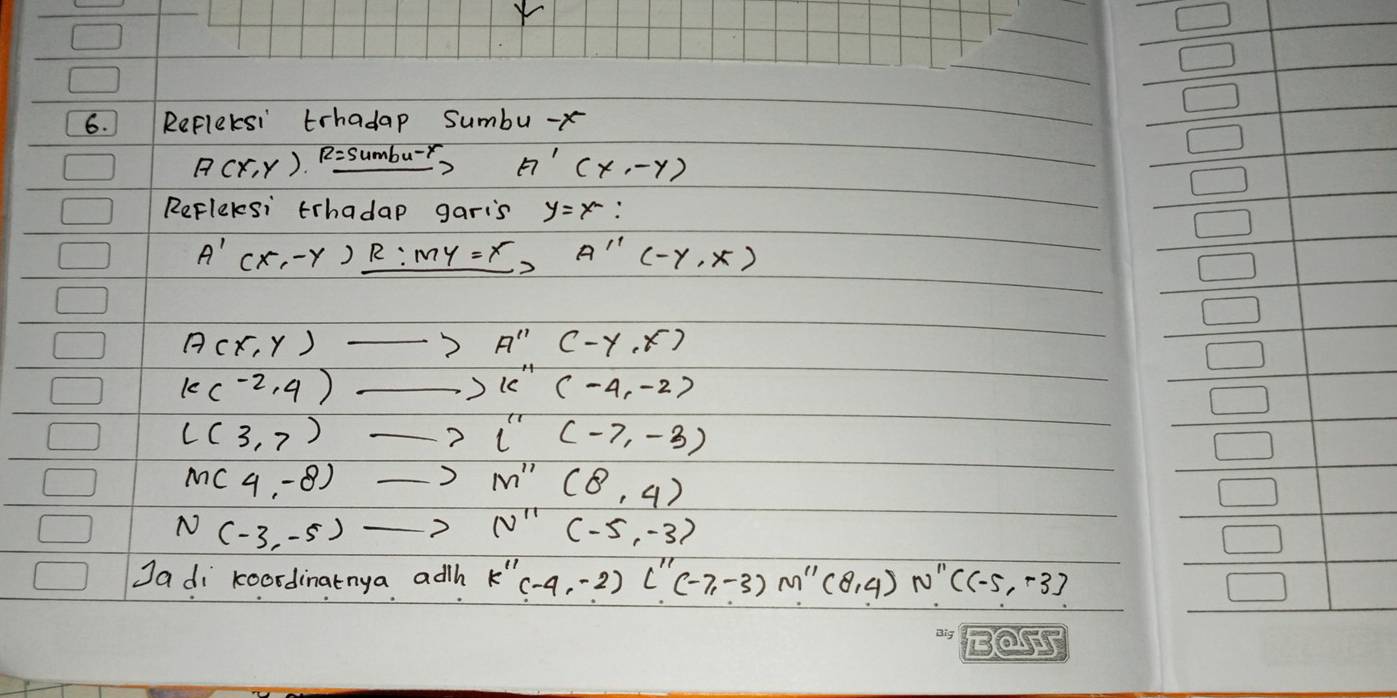 6. Refleksi trhadap Sumbu -x
A(x,y). R=sumbu-x A' (x,-y)
Refleksi trhadap garis y=x:
A' (x,-y) R:my=x A" (-y,x)
A(x,y) —> A" (-y,x)
K(-2,4) —> K" (-4,-2)
L(3,7) —> L" (-7,-3)
M(4,-8) —> M" (8,4)
N (-3,-5) —> N" (-5,-3)
Jadi koordinatnya adlh K"(-4,-2) L"(-7,-3) M"(8,4) N"((-5,-3)
Big BOSS